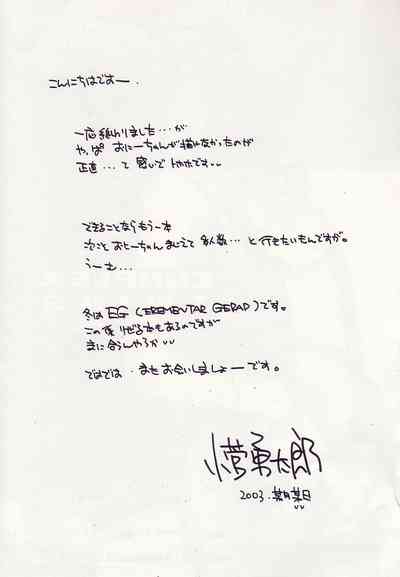 こんにちはですー.
一応終わりました…が
やっぱ おにーちゃんが描けなかったのが
正直…て感いでトホホです
できることならもう一本
次こそおにーちゃんまじえて 多人数…と行きたいもんですが。
うーむ…
冬はEG(EREMENTAR GERAD)です。
この後りぜるさんもあるのですが
まに合うんやろか
ではでは・またお会いしましょーです。
小菅勇太郎
2003.某月某日